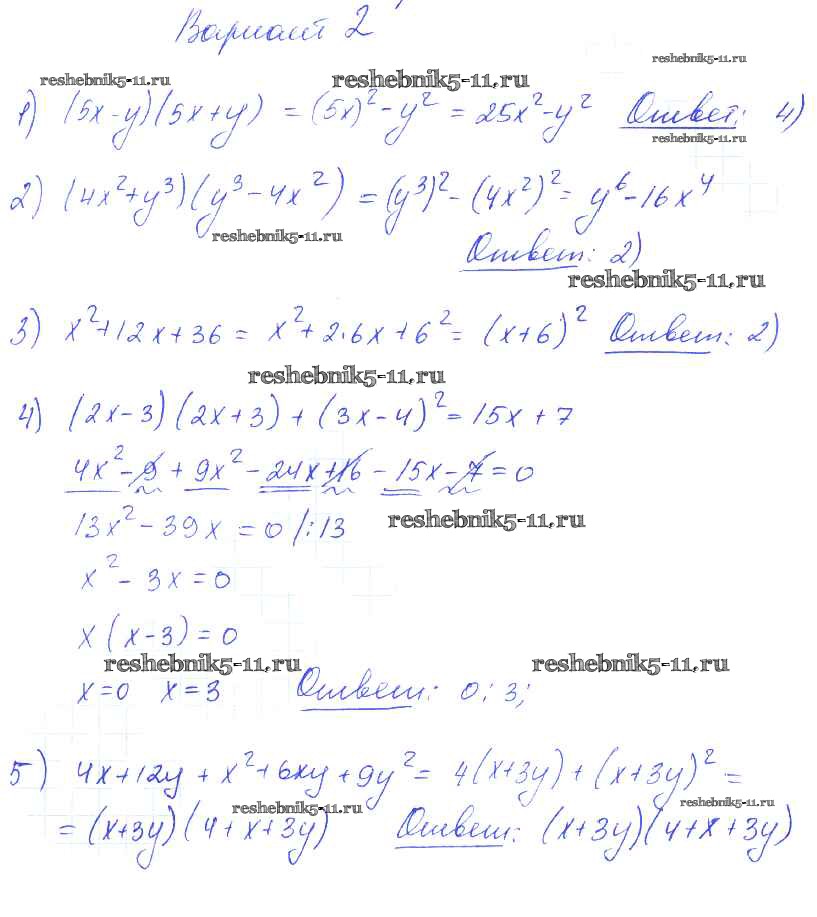 Вариант 2
reshebnik5-11.ru
reshebnik5-11.ru reshebnik5-11.ru
1) (5x-y)(5x+y) = (5x)²-y² = 25x²-y² Ответ: 4)
reshebnik5-11.ru
2) (4x²+y³)(y³-4x²) = (y³)²-(4x²)² = y⁶-16x⁴
reshebnik5-11.ru
Ответ: 2)
reshebnik5-11.ru
3) x²+12x+36 = x²+2·6x+6² = (x+6)² Ответ: 2)
reshebnik5-11.ru
4) (2x-3)(2x+3)+(3x-4)² = 15x+7
4x²-9+9x²-24x+16-15x-7=0
13x²-39x=0 /:13
reshebnik5-11.ru
x²-3x=0
x(x-3)=0
reshebnik5-11.ru reshebnik5-11.ru
x=0 x=3 Ответ: 0; 3;
5) 4x+12y+x²+6xy+9y² = 4(x+3y)+(x+3y)² =
reshebnik5-11.ru reshebnik5-11.ru
= (x+3y)(4+x+3y) Ответ: (x+3y)(4+x+3y)